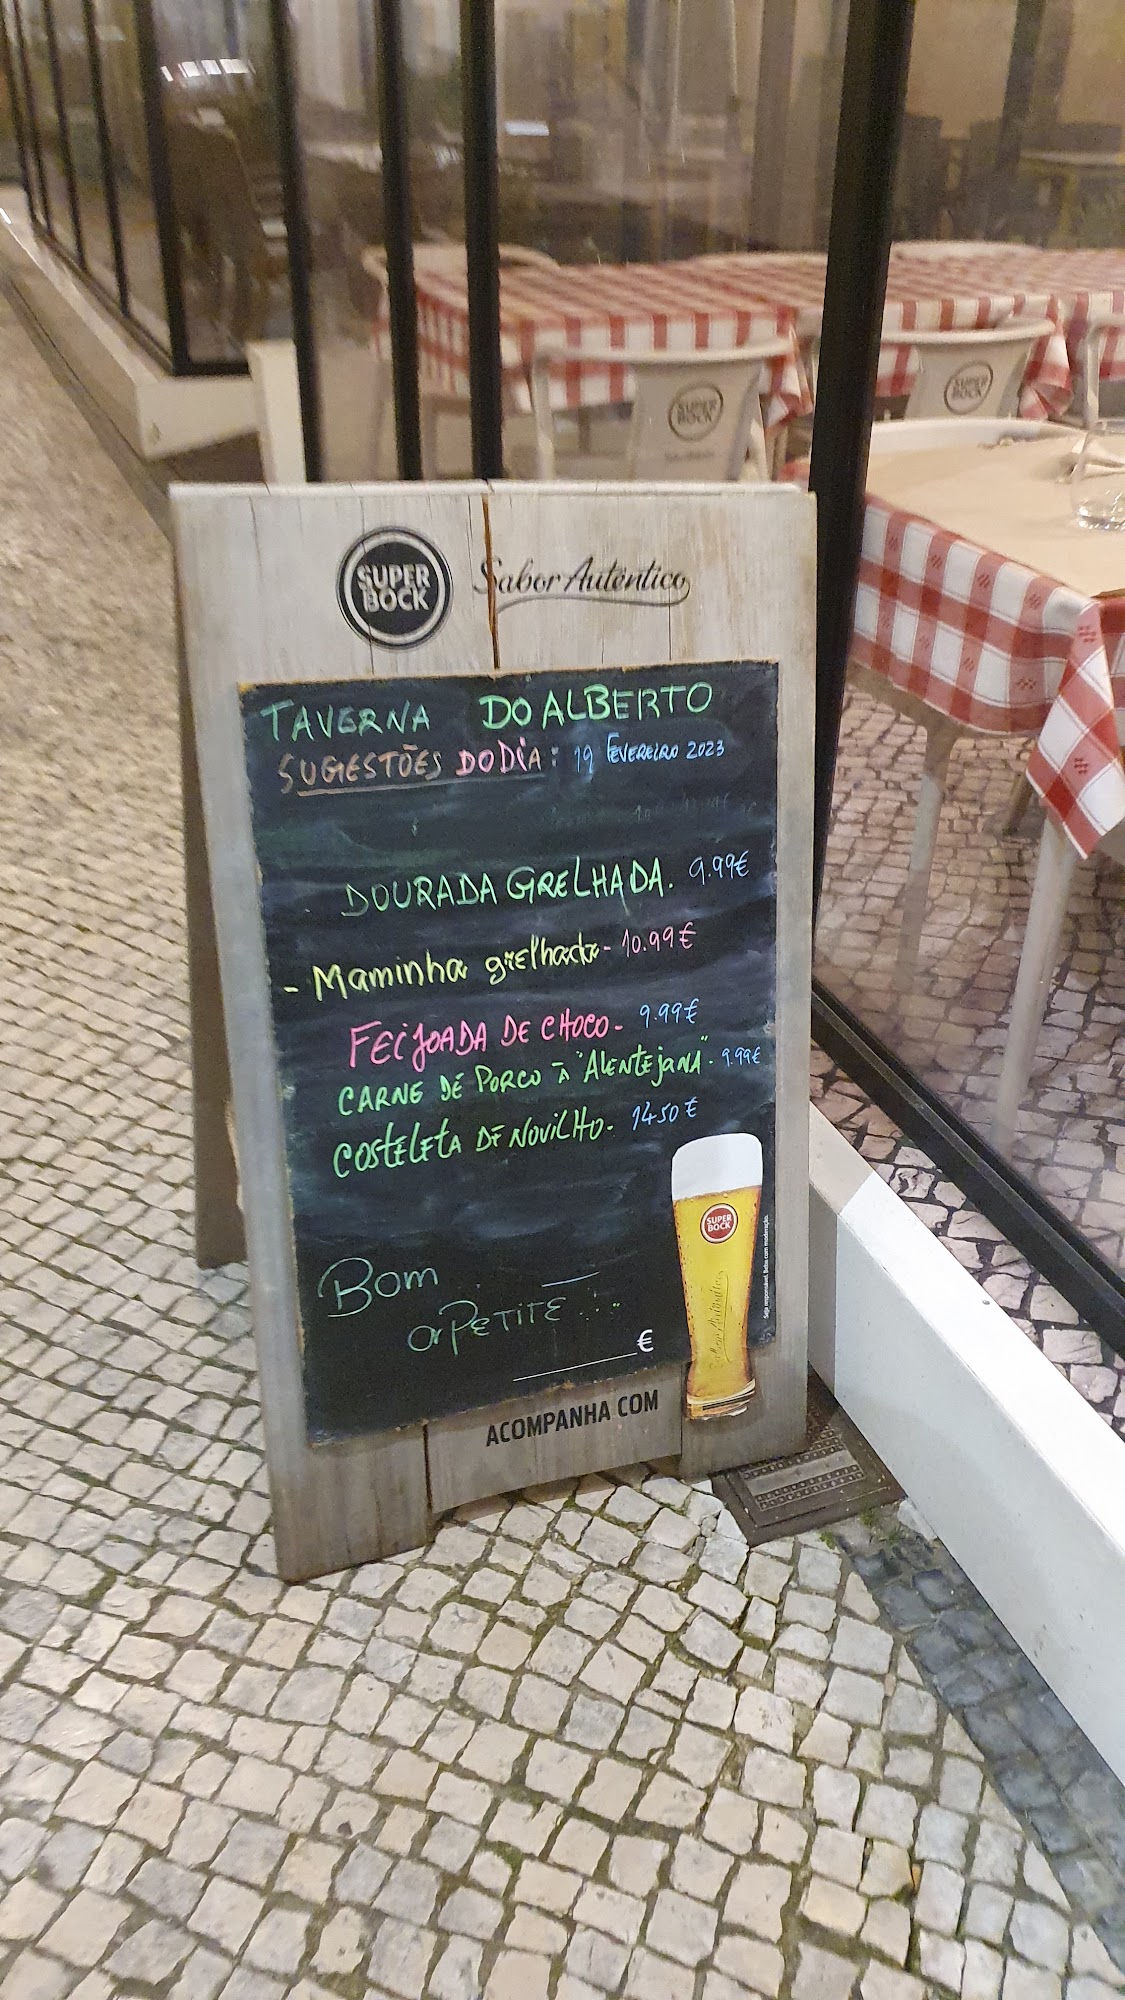 SUPER
BOCK
SUPER
BOCK
SUPER
BOCK
Sabor Autêntico
TAVERNA DO ALBERTO
SUGESTÕES DO DIA: 19 FEVEREIRO 2023
DOURADA GRELHADA. 9.99€
- Maminha grelhada - 10.99€
FEIJOADA DE CHOCO - 9.99€
CARNE DE PORCO À "ALENTEJANA". 9.99€
COSTELETA DE NOVILHO. 14.50€
SUPER
BOCK
Sabor Autêntico
Seja responsável. Beba com moderação.
Bom
aPETITE...
€
ACOMPANHA COM